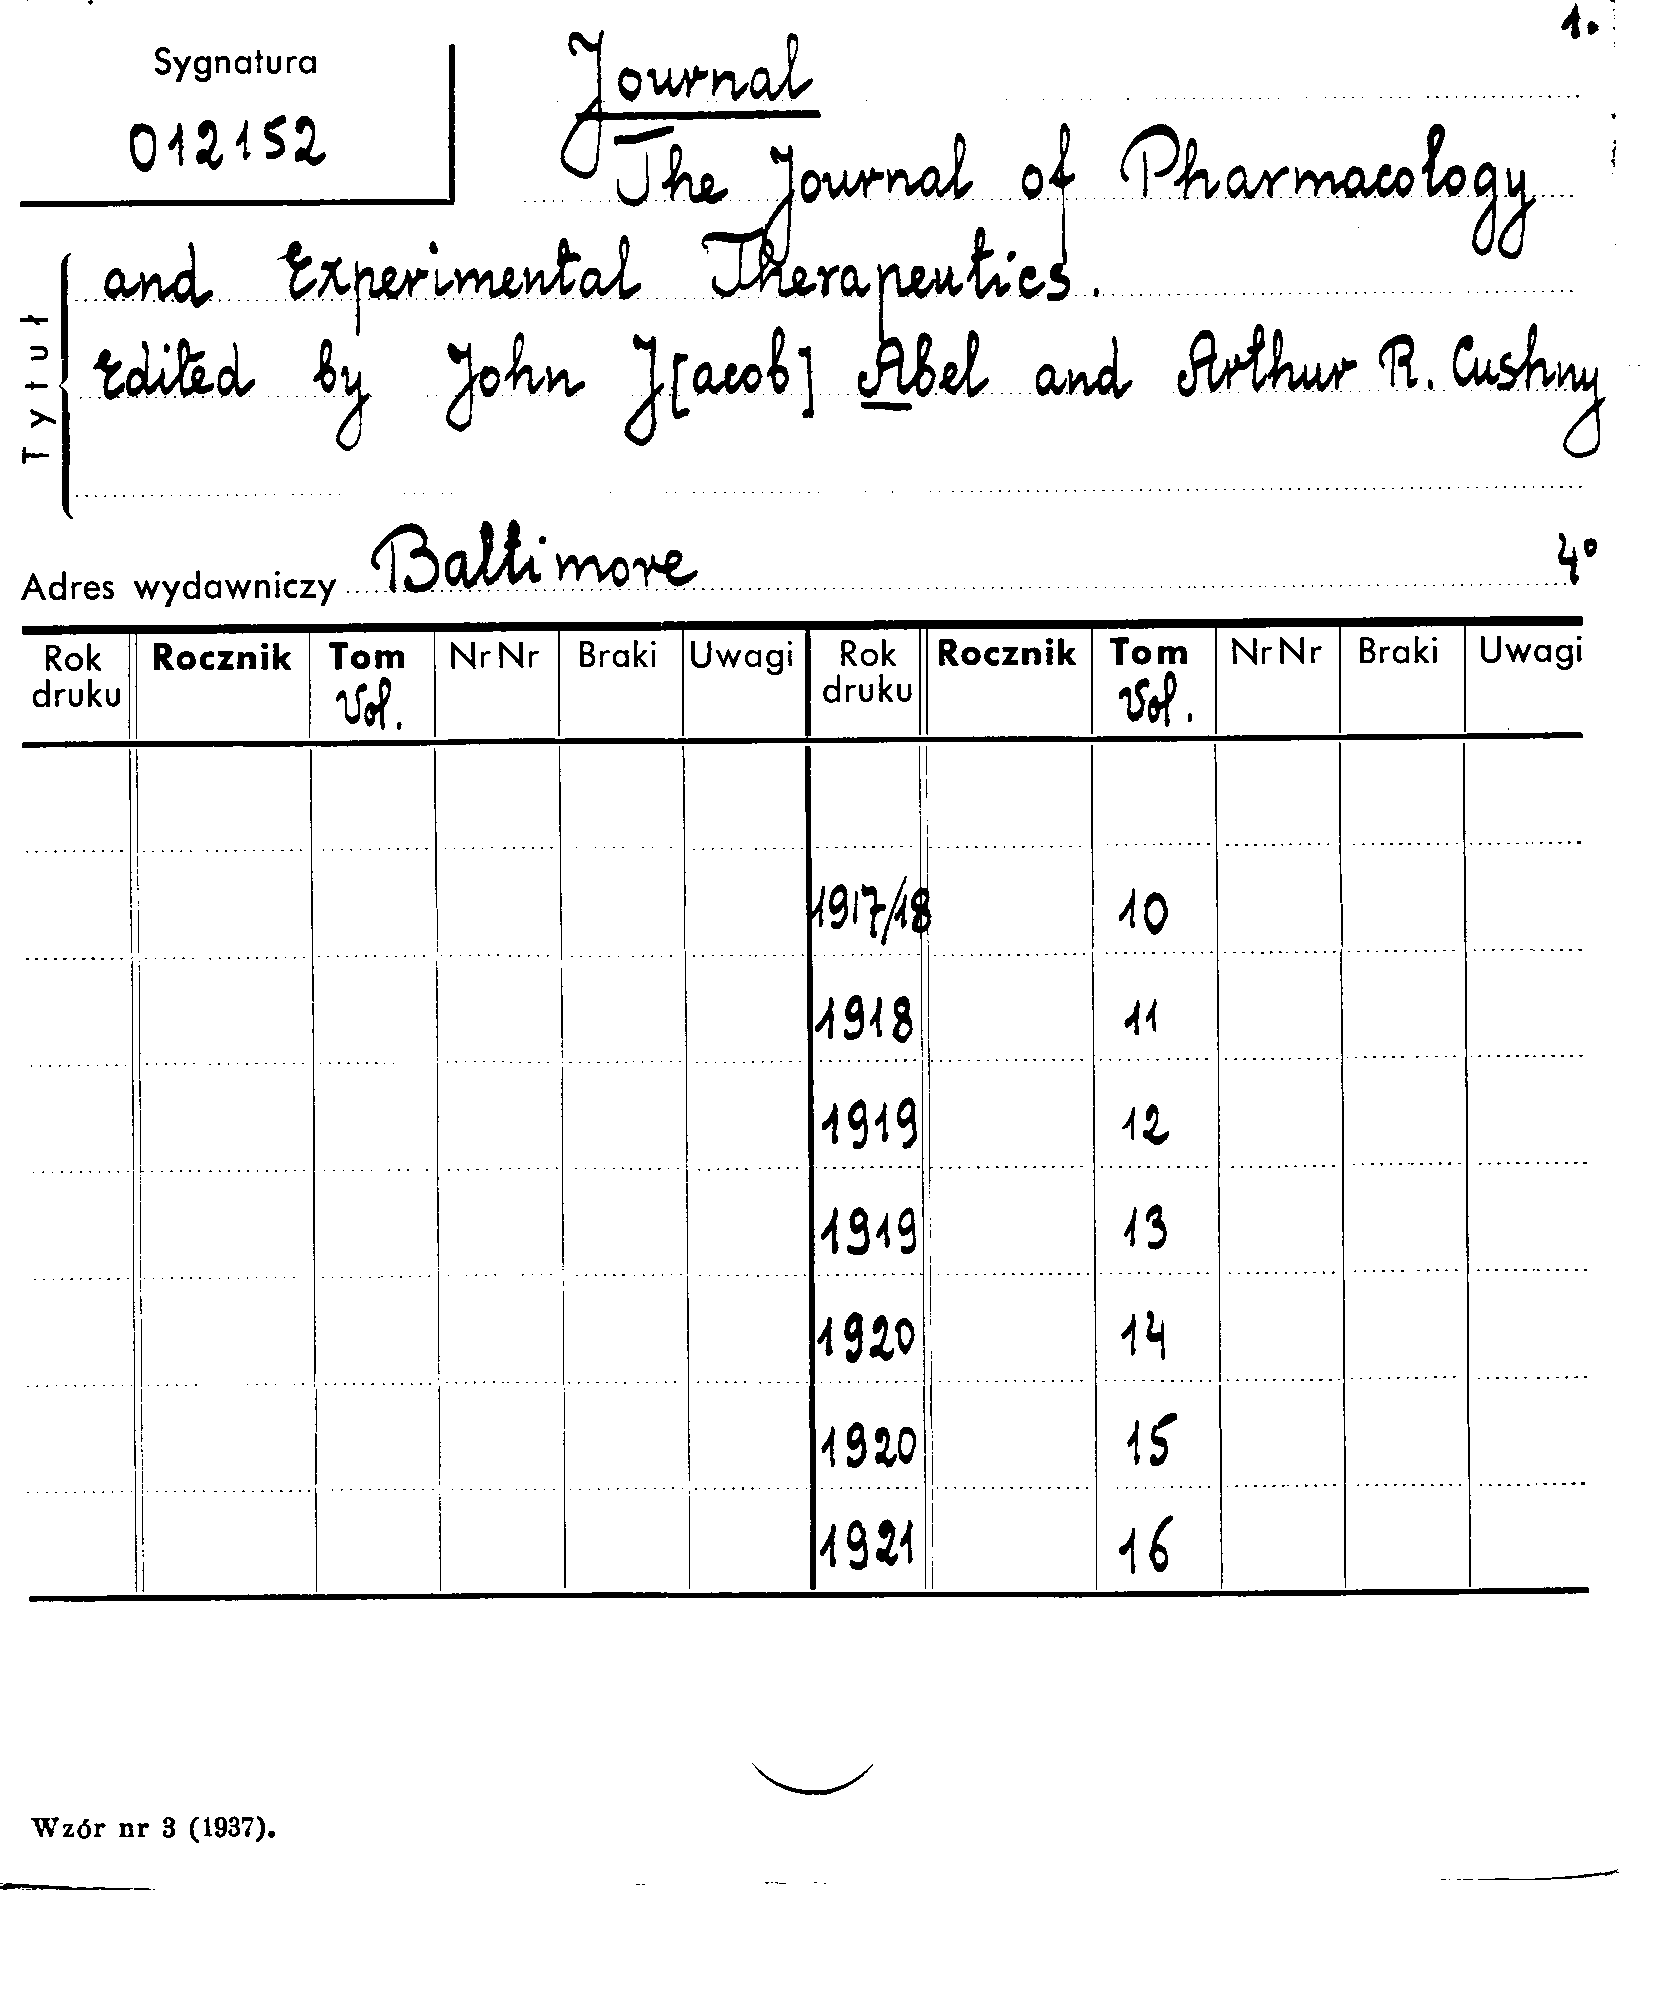 1.
Sygnatura
012152
Journal
The Journal of Pharmacology
and Experimental Therapeutics.
Edited by John J[acob] Abel and Arthur R. Cushny
Tytuł
Adres wydawniczy Baltimore 4°
Rok druku Rocznik Tom Vol. Nr Nr Braki Uwagi Rok druku Rocznik Tom Vol. Nr Nr Braki Uwagi
1917/18 10
1918 11
1919 12
1919 13
1920 14
1920 15
1921 16
Wzór nr 3 (1937).